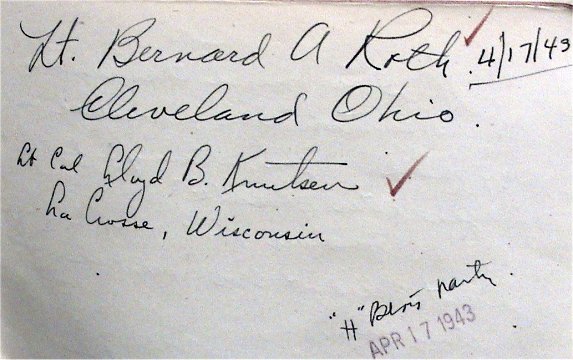 Lt. Bernard A Roth. 4/17/43
Cleveland Ohio.
Lt Col Lloyd B. Knutsen
La Crosse, Wisconsin
"H" party.
APR 17 1943